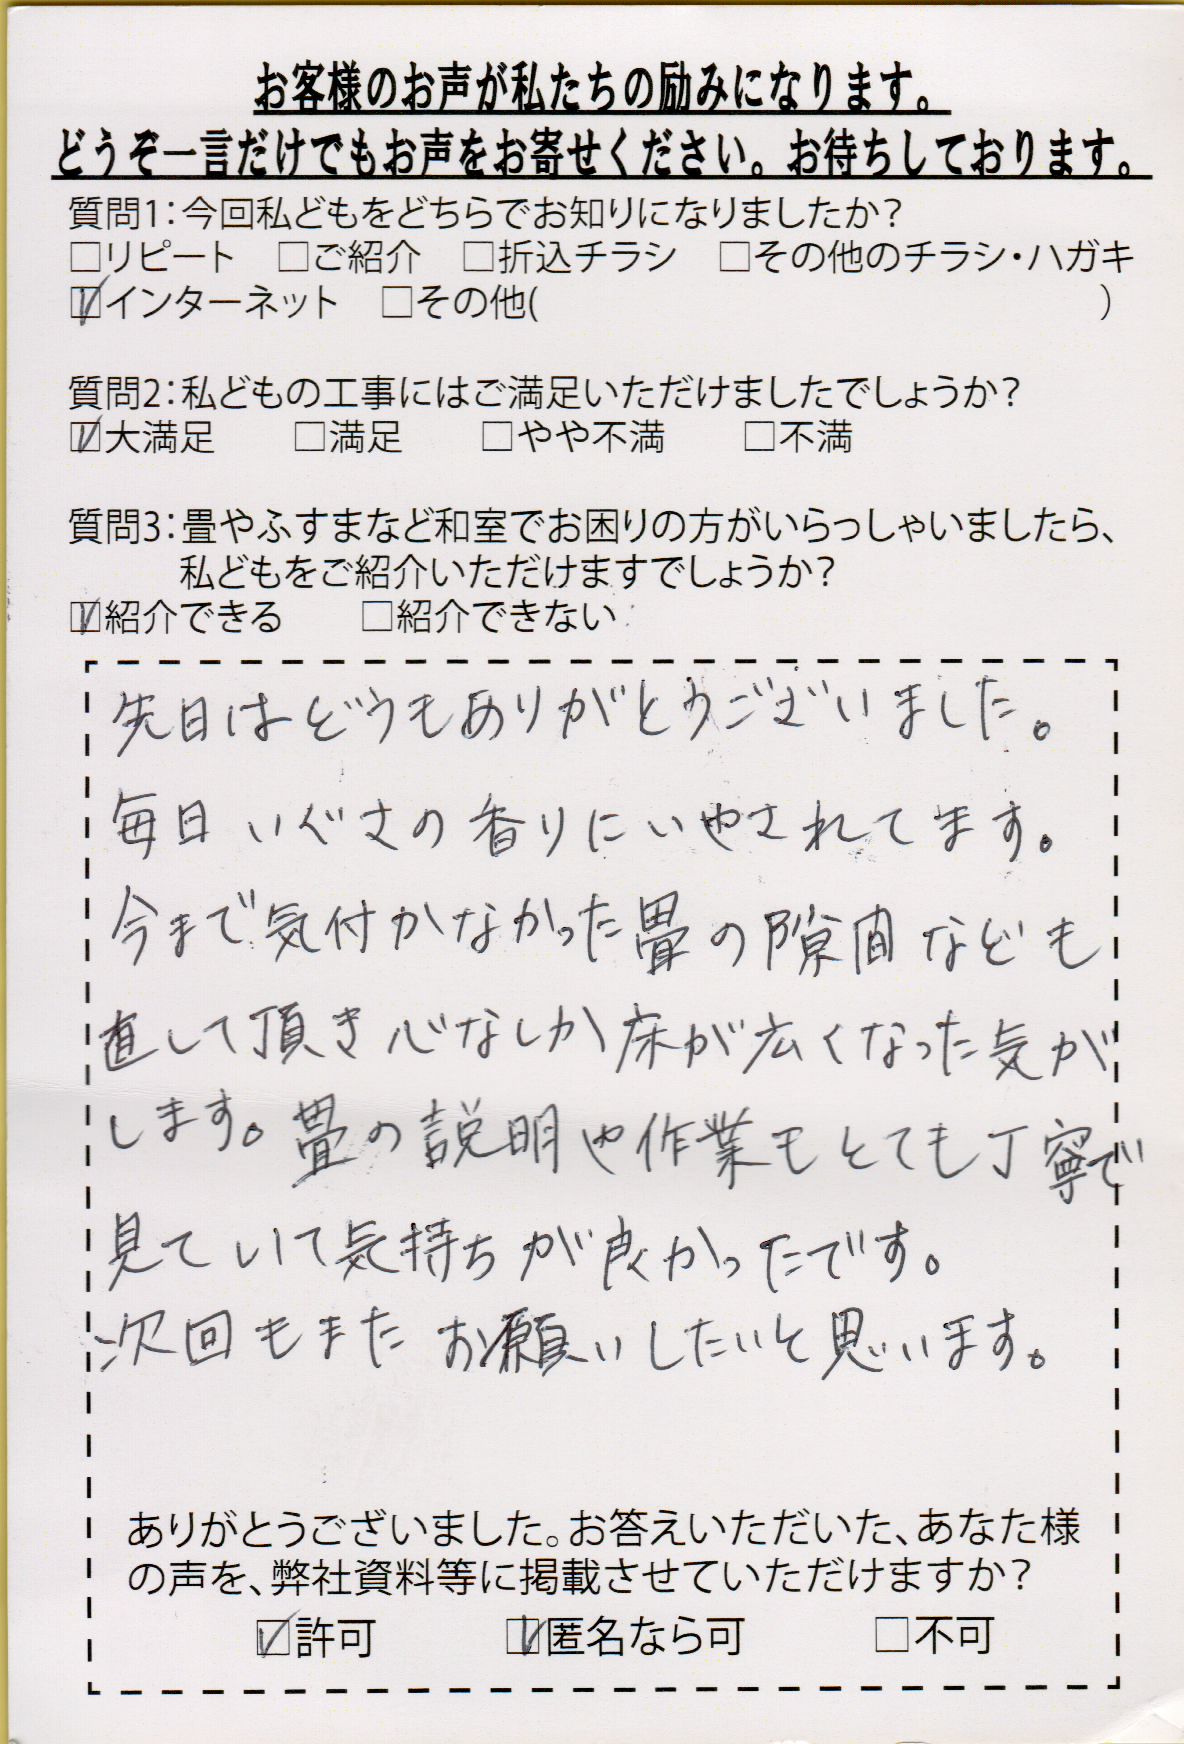 お客様のお声が私たちの励みになります。
どうぞ一言だけでもお声をお寄せください。お待ちしております。
質問1：今回私どもをどちらでお知りになりましたか？
□リピート　□ご紹介　□折込チラシ　□その他のチラシ・ハガキ
☑インターネット　□その他(　　　)
質問2：私どもの工事にはご満足いただけましたでしょうか？
☑大満足　□満足　□やや不満　□不満
質問3：畳やふすまなど和室でお困りの方がいらっしゃいましたら、
私どもをご紹介いただけますでしょうか？
☑紹介できる　□紹介できない
先日はどうもありがとうございました。
毎日いぐさの香りにいやされてます。
今まで気付かなかった畳の隙間なども
直して頂き心なしか床が広くなった気が
します。畳の説明や作業もとても丁寧で
見ていて気持ちが良かったです。
次回もまたお願いしたいと思います。
ありがとうございました。お答えいただいた、あなた様
の声を、弊社資料等に掲載させていただけますか？
☑許可　☑匿名なら可　□不可